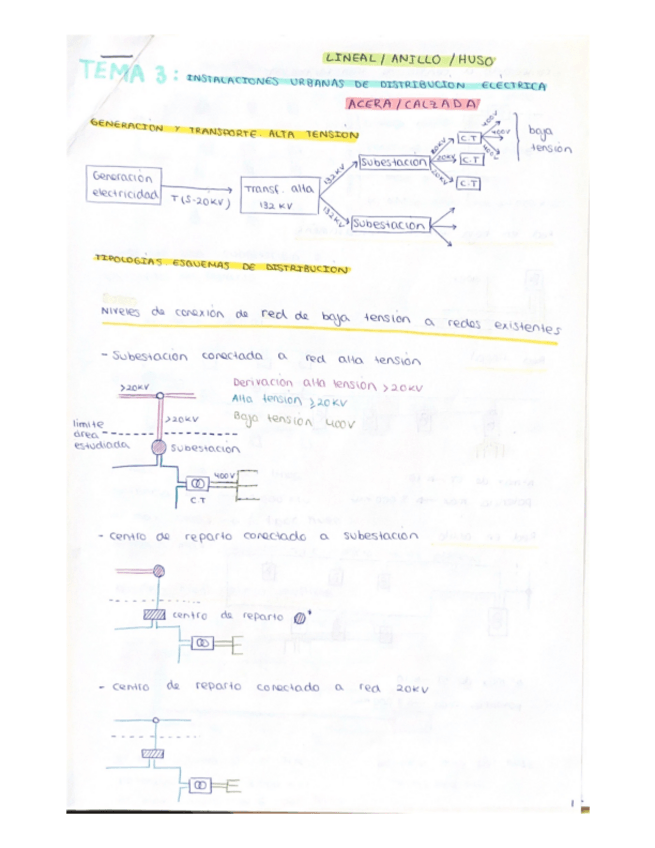 LINEAL / ANILLO / HUSO
TEMA 3: INSTALACIONES URBANAS DE DISTRIBUCIÓN ELÉCTRICA
ACERA / CALZADA
GENERACIÓN Y TRANSPORTE. ALTA TENSIÓN
Generación electricidad
T (5-20KV)
Transf. alta 132 KV
132 KV
132 KV
Subestación
Subestación
20KV
20KV
20KV
C.T
C.T
C.T
400V
400V
400V
baja tensión
TIPOLOGÍAS ESQUEMAS DE DISTRIBUCIÓN
Niveles de conexión de red de baja tensión a redes existentes
- Subestación conectada a red alta tensión
>20KV
>20KV
límite área estudiada
Subestación
400V
C.T
Derivación alta tensión >20KV
Alta tensión ≥20KV
Baja tensión 400V
- Centro de reparto conectado a subestación
centro de reparto *
- Centro de reparto conectado a red 20KV
1